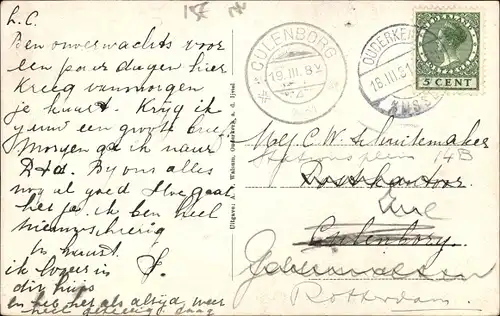 L.C.
Ben onverwachts voor
een paar dagen hier
Kreeg vanmorgen
je kaart. Krijg ik
gauw een groote brief
Morgen ga ik naar
Bij ons alles
nog al goed Hoe gaat
het je, ik ben heel
nieuwschierig
in haast
ik logeer in
dit huis
en heb het als altijd weer
heel gezellig
Uitgave: A. Walsum, Ouderkerk a. d. IJssel
CULENBORG
19.III.9
OUDERKERK
18.III.31
IJSSEL
NEDERLAND
5 CENT
C.W. Schuitemaker
Stationsplein 14B
Postkantoor
Culenborg.
Rotterdam.